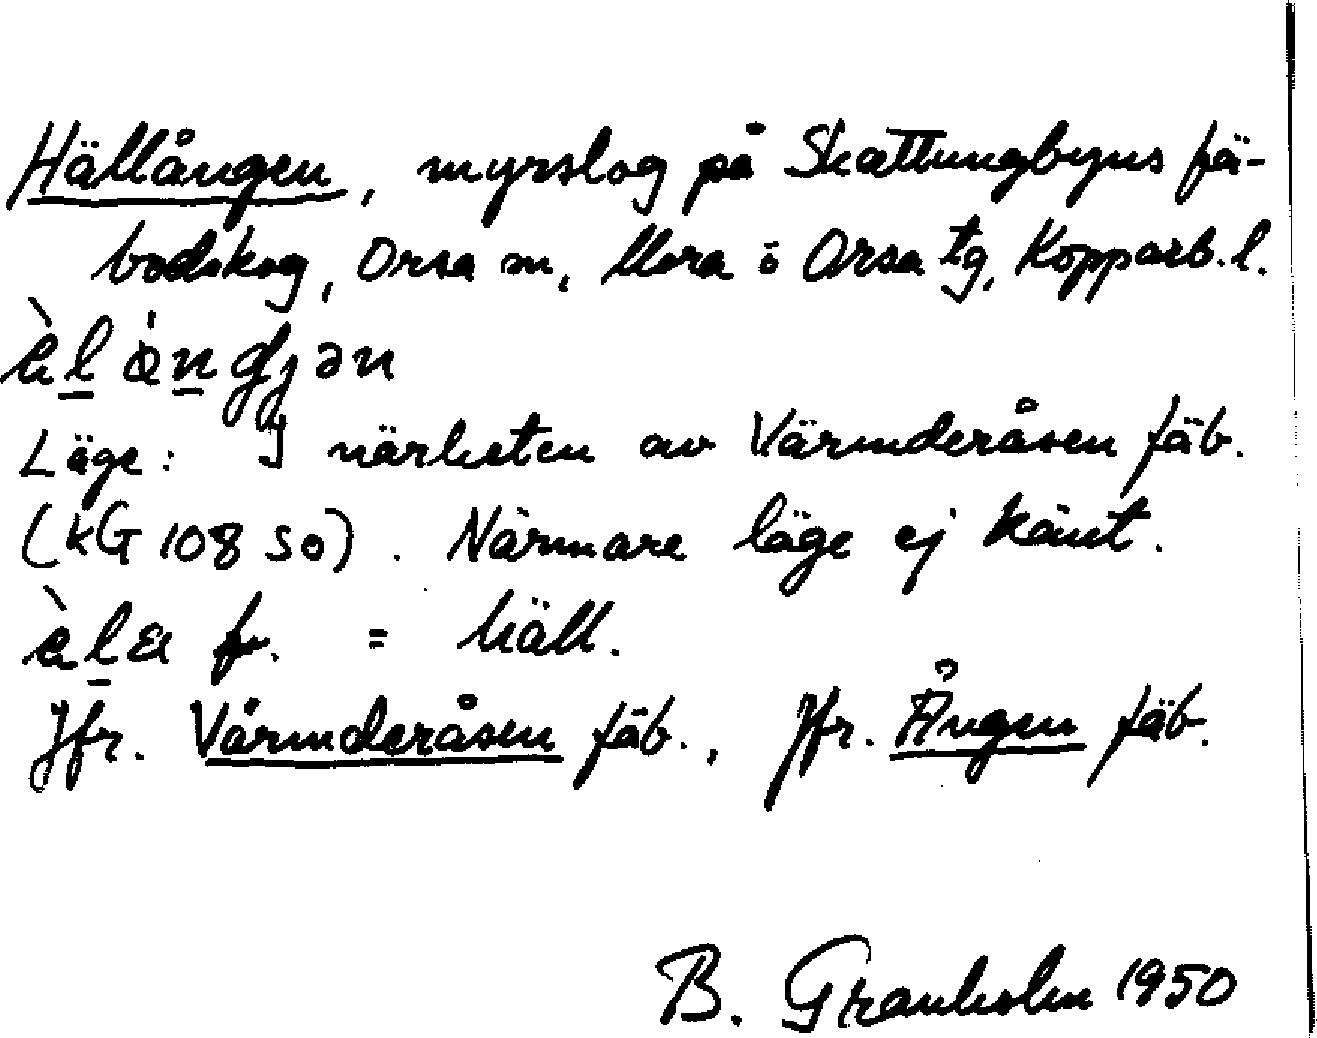 Hällången, myrslog på Skattungbyns fä-
bodskog, Orsa sn, Mora o Orsa tg, Kopparb. l.
Läge: I närheten av Värmderåsen fäb.
(kG 108 SO). Närmare läge ej känt.
f. = häll.
Jfr. Värmderåsen fäb., Jfr. Ången fäb.
B. Granholm 1950